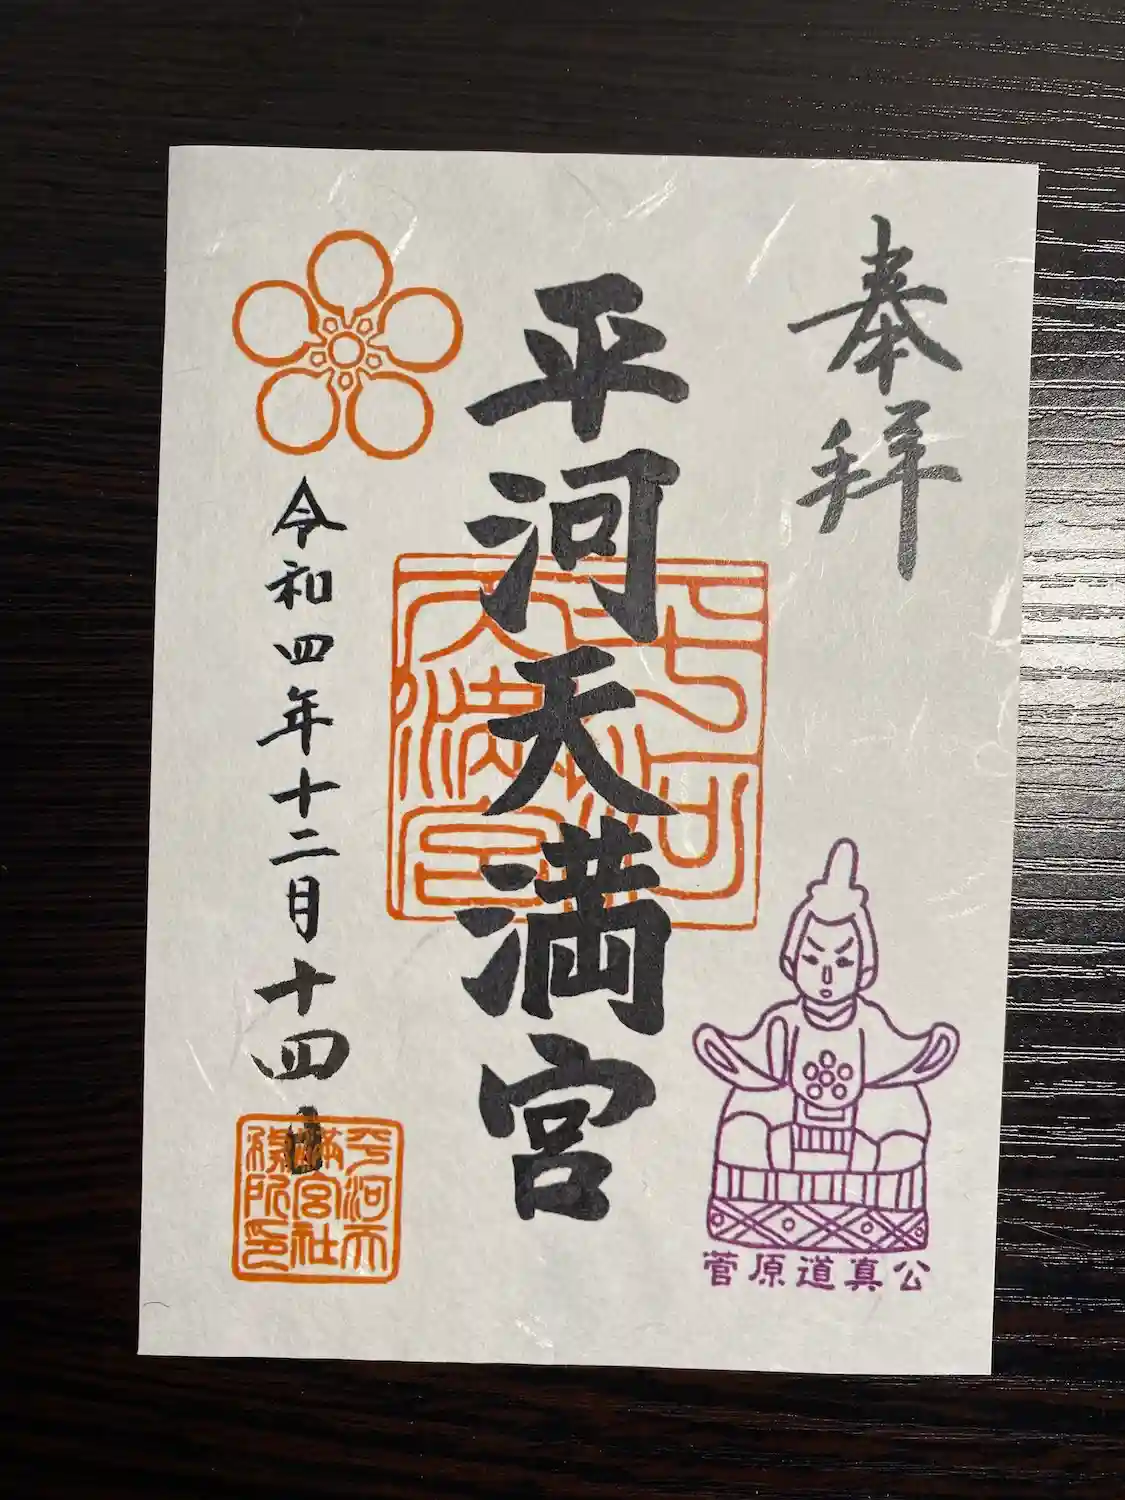 奉拝
平河天満宮
令和四年十二月十四日
菅原道真公
平河天満宮
平河天満宮社務所印